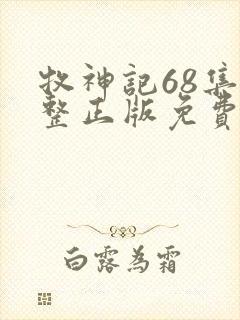 牧神記68集
整正版免費
白露為霜